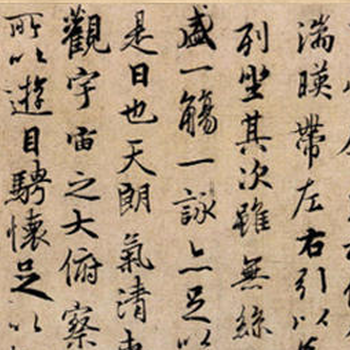 湍暎帶左右引以
列坐其次雖無絲
盛一觴一詠亦足以
是日也天朗氣清
觀宇宙之大俯察
所以遊目騁懷足以